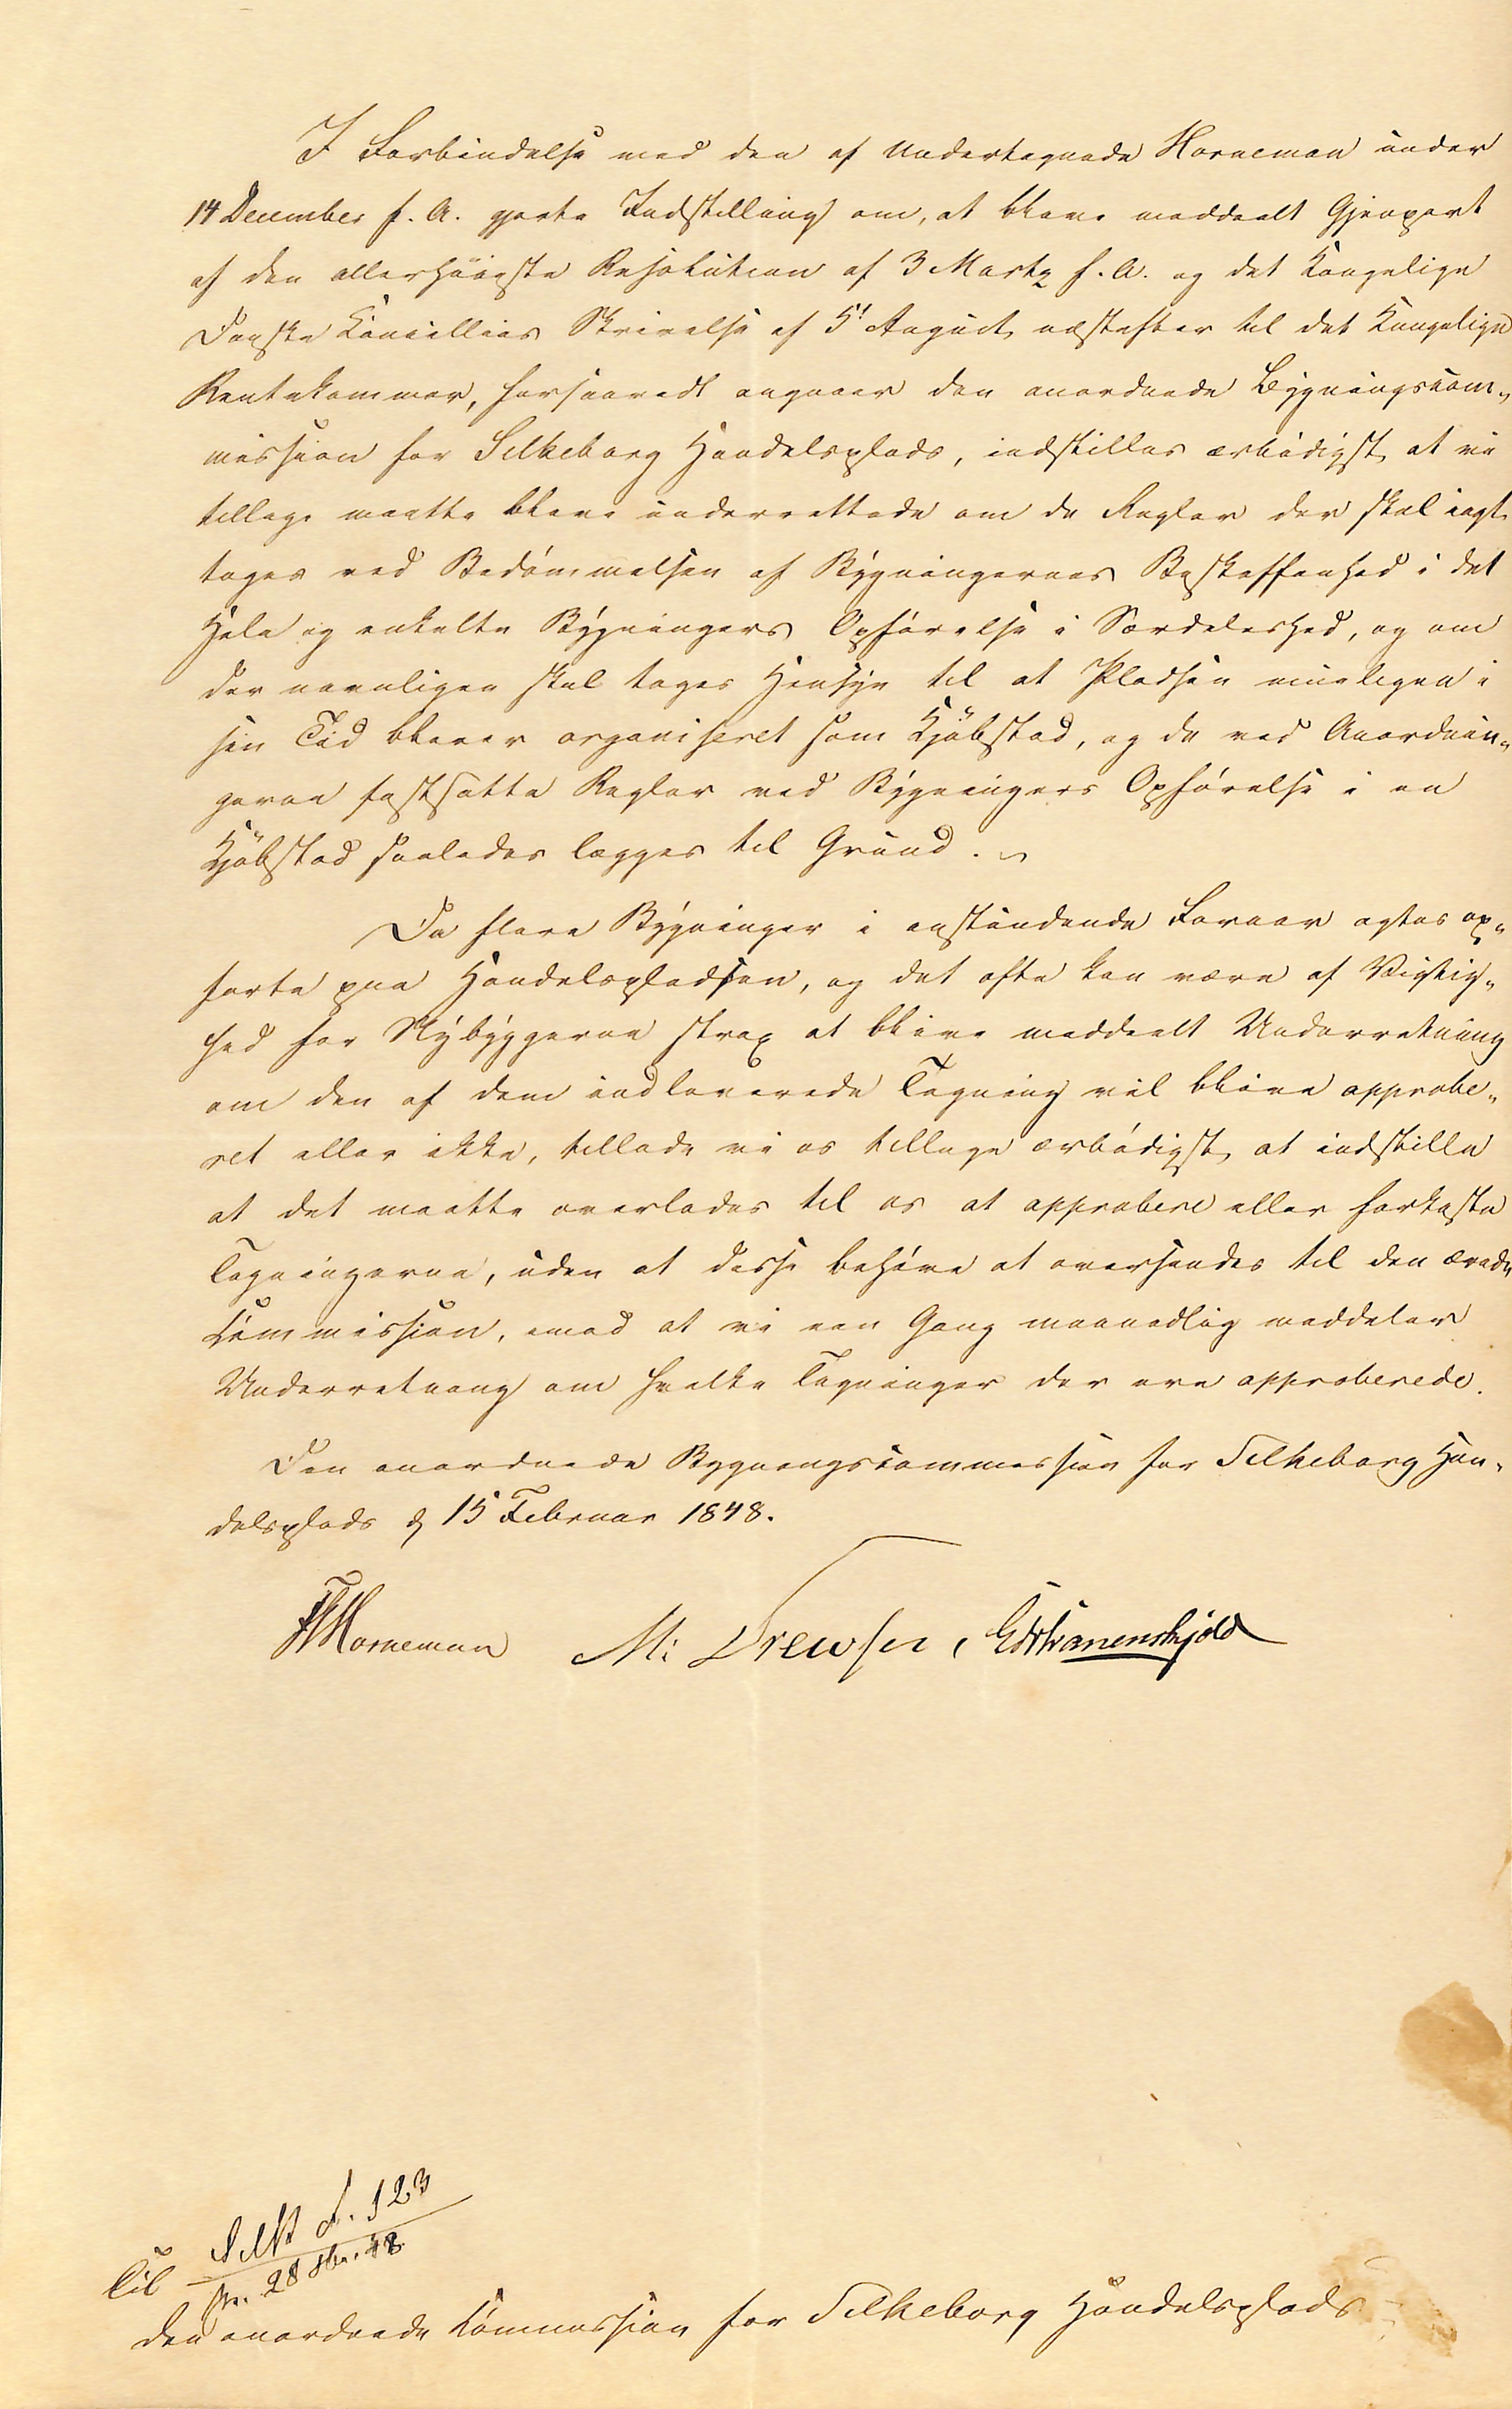 I Forbindelse med den af Undertegnede Horneman under
14 December f. A. gjorte Indstilling om, at blive meddeelt Gjenpart
af den allerhöieste Resolution af 3 Marts f. A. og det Kongelige
Danske Cancellies Skrivelse af 5' August næstefter til det Kongelige
Rentekammer, forsaavidt angaaer den anordnede Bygningscom„
mission for Silkeborg Handelsplads, indstilles ærbödigst, at vi
tillige maatte blive underrettede om de Regler der skal iagt
tages ved Bedömmelsen af Bygningernes Beskaffenhed i det
Hele og enkelte Bygningers Opförelse i Særdeleshed, og om
der navnligen skal tages Hensyn til at Pladsen rimeligen i
sin Tid bliver organiseret som Kjöbstad, og de ved Anordnin„
gerne fastsatte Regler ved Bygningers Opförelse i en
Kjöbstad saaledes lægges til Grund.
Da flere Bygninger i anstundende Foraar agtes op„
förte paa Handelspladsen, og det ofte kan være af Vigtig„
hed for Nybyggerne strax at blive meddeelt Underretning
om den af dem indleverede Tegning vil blive approbe„
ret eller ikke, tillade vi os tillige ærbödigst, at indstille
at det maatte overlades til os at approbere eller forkaste
Tegningerne, uden at disse behöve at oversendes til den ærede
Commission, imod at vi een Gang maanedlig meddeler
Underretning om hvilke Tegninger der ere approberede.
Den anordnede Bygningscommission for Silkeborg Han„
delsplads d 15 Februar 1848.
Horneman M: Drewsen, Edv Tranenskjold
Silk A. 123
Pr. 28 Fbr. 48.
Til
den anordnede Commission for Silkeborg Handelsplads